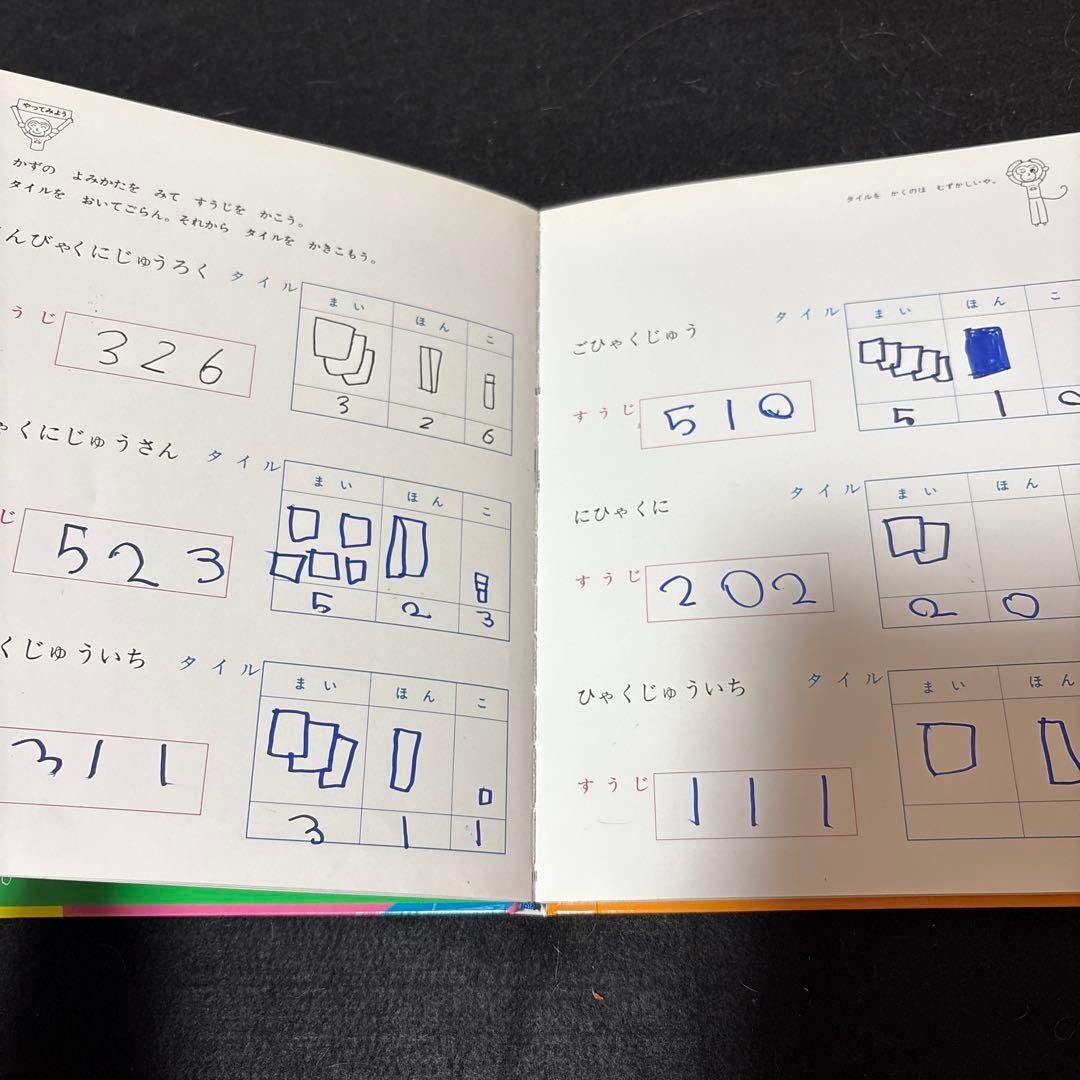 やってみよう
かずの よみかたを みて すうじを かこう。
タイルを おいてごらん。それから タイルを かきこもう。
んびゃくにじゅうろく タイル
まい ほん こ
うじ 326
3 2 6
ゃくにじゅうさん タイル
まい ほん こ
じ 523
5 2 3
くじゅういち タイル
まい ほん こ
311
3 1 1
タイルを かくのは むずかしいや。
ごひゃくじゅう タイル
まい ほん こ
すうじ 510
5 1 0
にひゃくに タイル
まい ほん
すうじ 202
2 0
ひゃくじゅういち タイル
まい ほん
すうじ 111